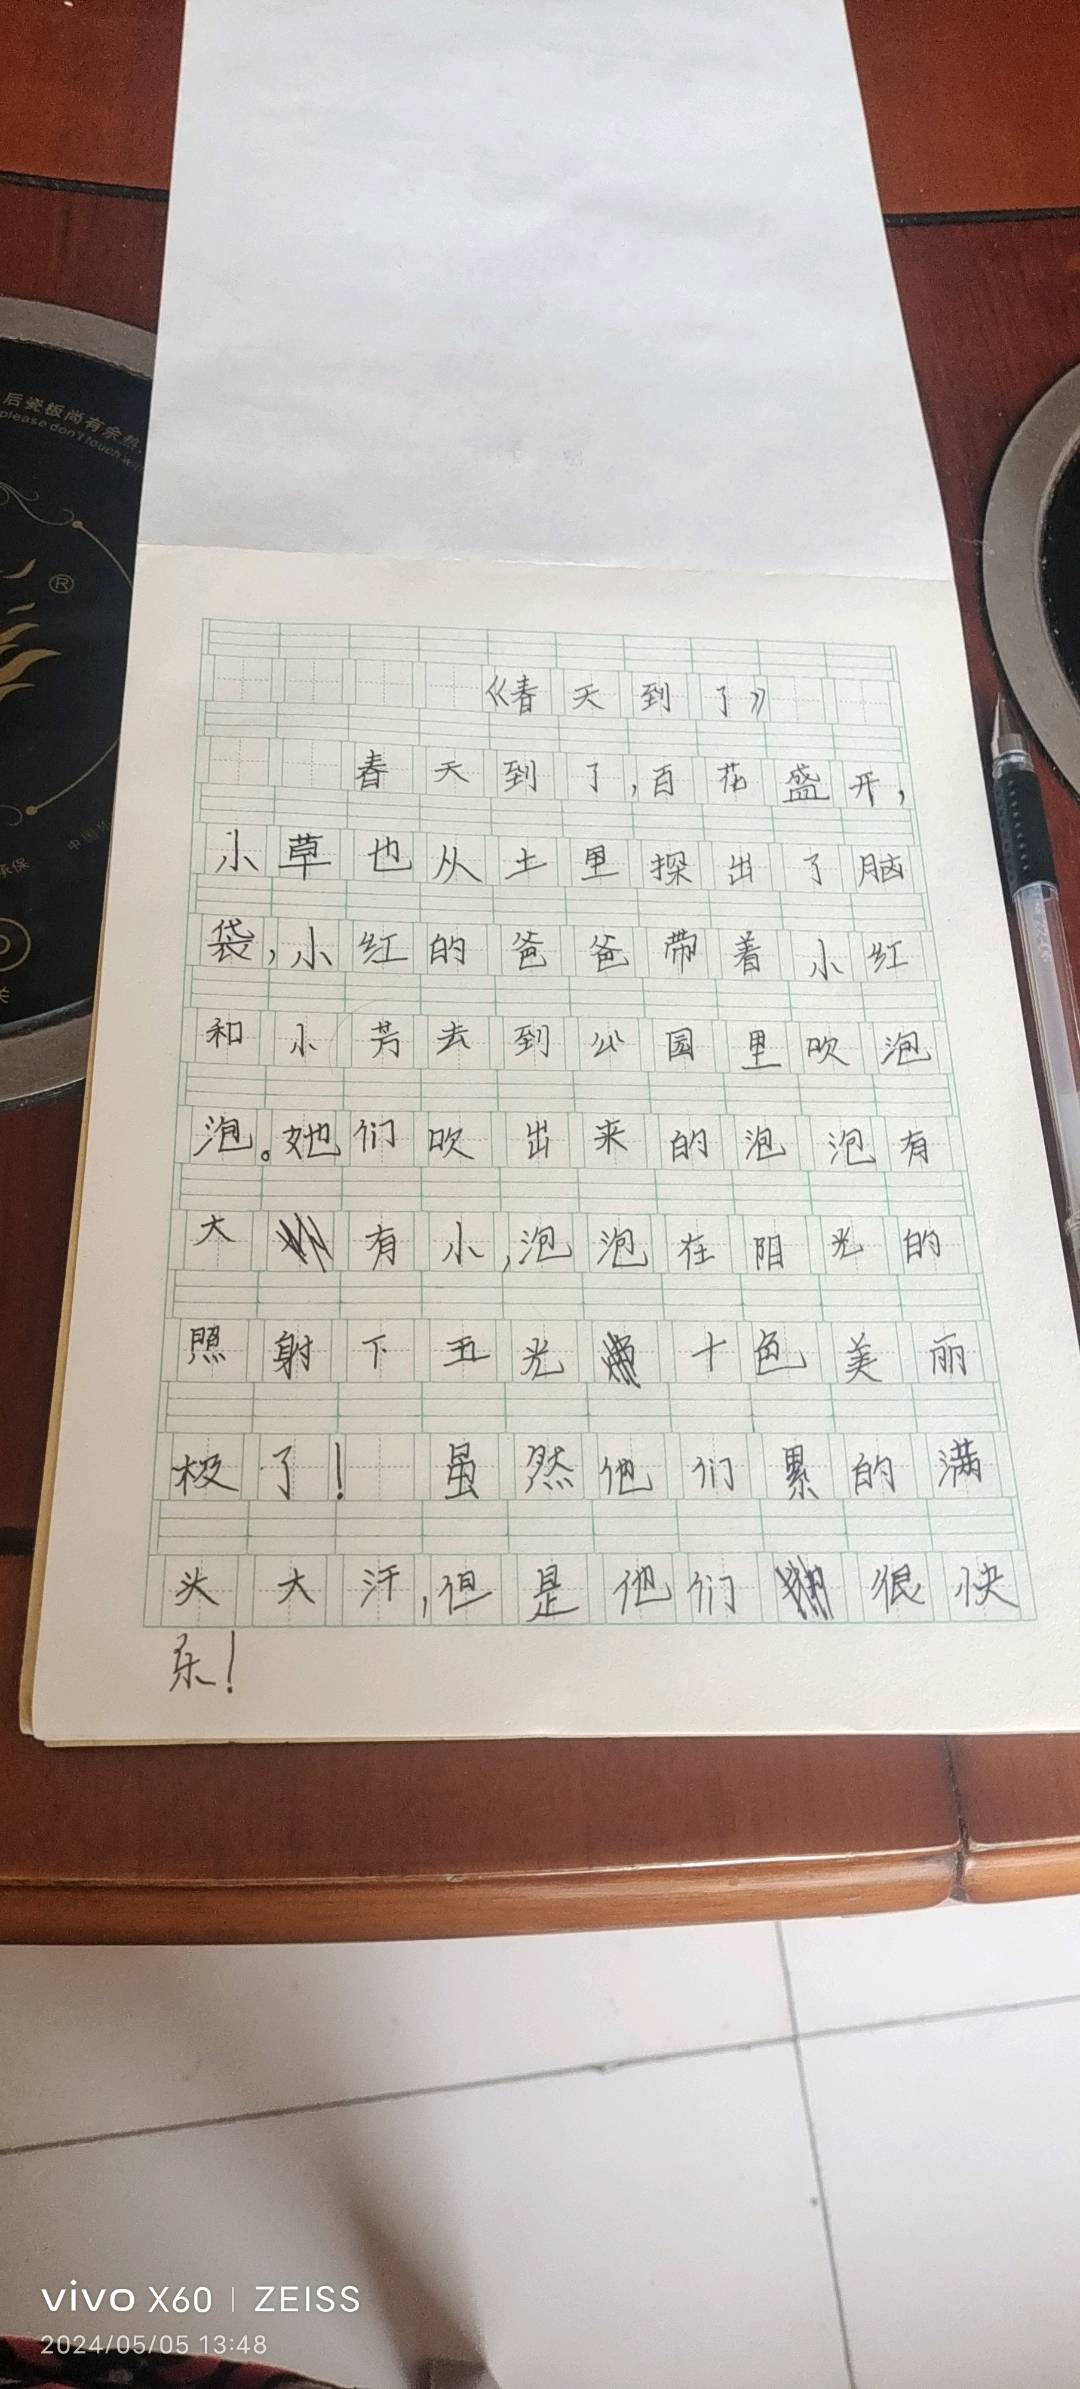 后瓷板尚有余热,
please don't touch
®
中国
承保
关
《春天到了》
春天到了,百花盛开,
小草也从土里探出了脑
袋,小红的爸爸带着小红
和小芳去到公园里吹泡
泡。她们吹出来的泡泡有
大有小,泡泡在阳光的
照射下五光十色美丽
极了! 虽然他们累的满
头大汗,但是他们很快
乐!
vivo X60 | ZEISS
2024/05/05 13:48